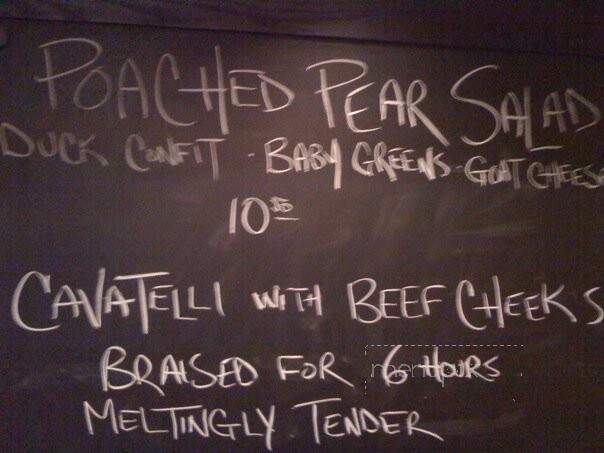 POACHED PEAR SALAD
DUCK CONFIT - BABY GREENS - GOAT CHEESE
10
CAVATELLI WITH BEEF CHEEKS
BRAISED FOR 6 HOURS
MELTINGLY TENDER